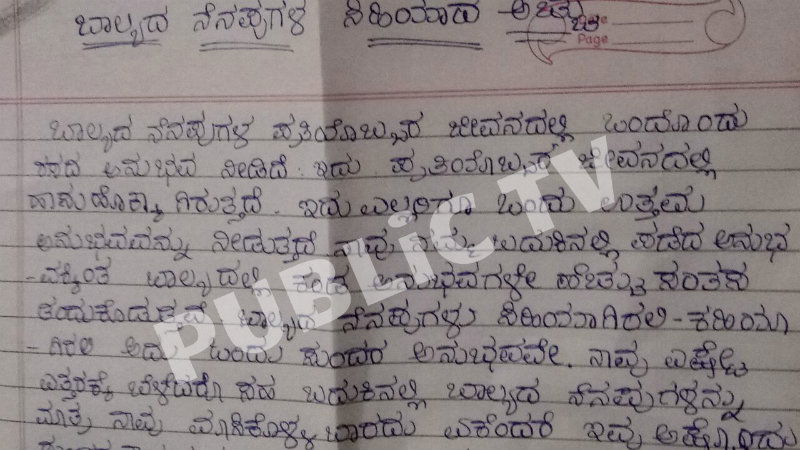 ಬಾಲ್ಯದ ನೆನಪುಗಳ ಸಿಹಿಯಾದ ಅಚ್ಚು
Page
ಬಾಲ್ಯದ ನೆನಪುಗಳ ಪ್ರತಿಯೊಬ್ಬರ ಜೀವನದಲ್ಲಿ ಒಂದೊಂದು
ಅನುಭವ ನೀಡಿದೆ. ಇದು ಪ್ರತಿಯೊಬ್ಬರ ಜೀವನದಲ್ಲಿ
ಇದು ಎಲ್ಲರಿಗೂ ಒಂದು ಉತ್ತಮ
ಅನುಭವವನ್ನು ನೀಡುತ್ತದೆ. ನಾವು ನಮ್ಮ ಬದುಕಿನಲ್ಲಿ ಪಡೆದ ಅನುಭ
-ವಕ್ಕಿಂತ ಬಾಲ್ಯದಲ್ಲಿ ಕಂಡ ಅನುಭವಗಳೇ ಹೆಚ್ಚು ಸಂತಸ
ತಂದುಕೊಡುತ್ತವೆ ಬಾಲ್ಯದ ನೆನಪುಗಳು ಸಿಹಿಯಾಗಿರಲಿ-ಕಹಿಯಾ
-ಗಿರಲಿ ಅದು ಒಂದು ಸುಂದರ ಅನುಭವವೇ. ನಾವು ಎಷ್ಟೇ
ಎತ್ತರಕ್ಕೆ ಬೆಳೆದರೂ ಸಹ ಬದುಕಿನಲ್ಲಿ ಬಾಲ್ಯದ ನೆನಪುಗಳನ್ನು
ಮಾತ್ರ ನಾವು ಬಾರದು ಏಕೆಂದರೆ ಇವು
PUBLiC TV